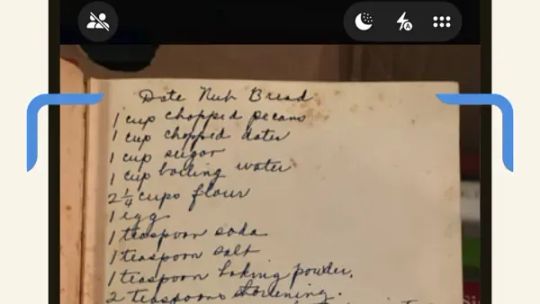 Date Nut Bread
1 cup chopped pecans
1 cup chopped dates
1 cup sugar
1 cup boiling water
2 1/4 cups flour
1 egg
1 teaspoon soda
1 teaspoon salt
1 teaspoon baking powder.
2 teaspoons shortening.